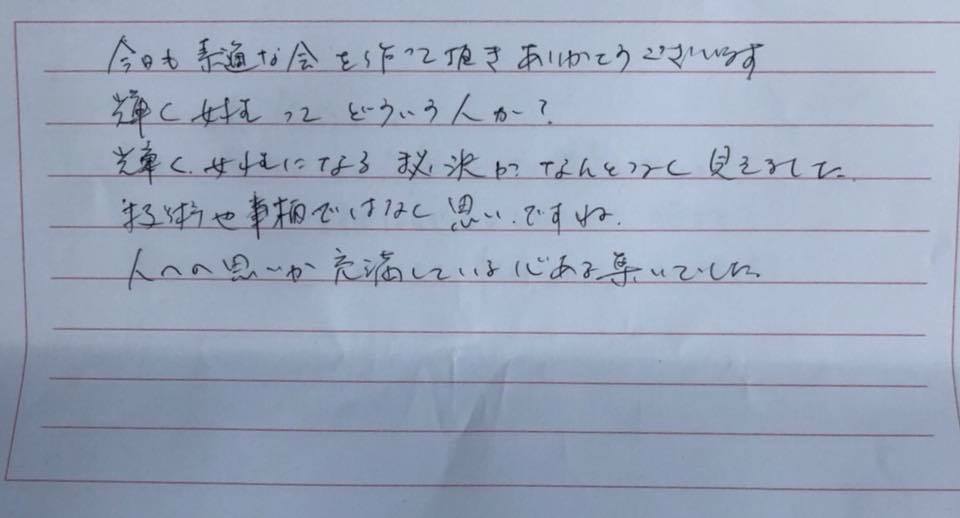 今日も素適な会を作って頂きありがとうございます
輝く女性って どういう人か?
輝く女性になる秘決がなんとなく見えました。
技術や事柄ではなく思い、ですね。
人への思いが充満している心ある集いでした。